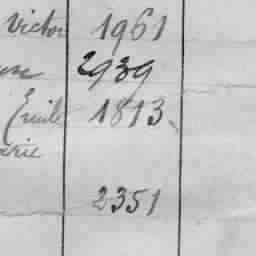 Victor 1961
2939
Emile 1813
2351